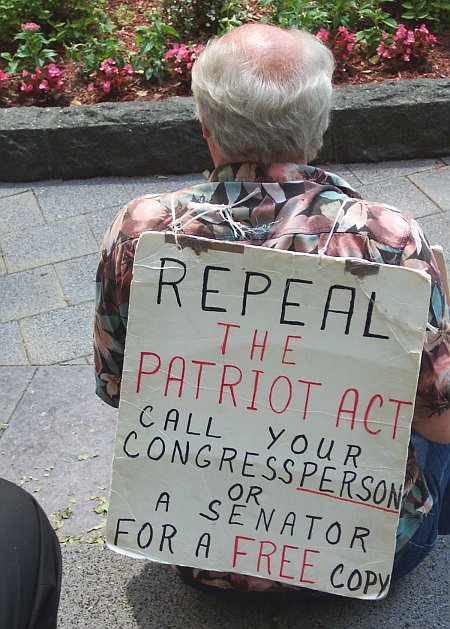 REPEAL
THE
PATRIOT ACT
CALL YOUR
CONGRESSPERSON
OR
A SENATOR
FOR A FREE COPY